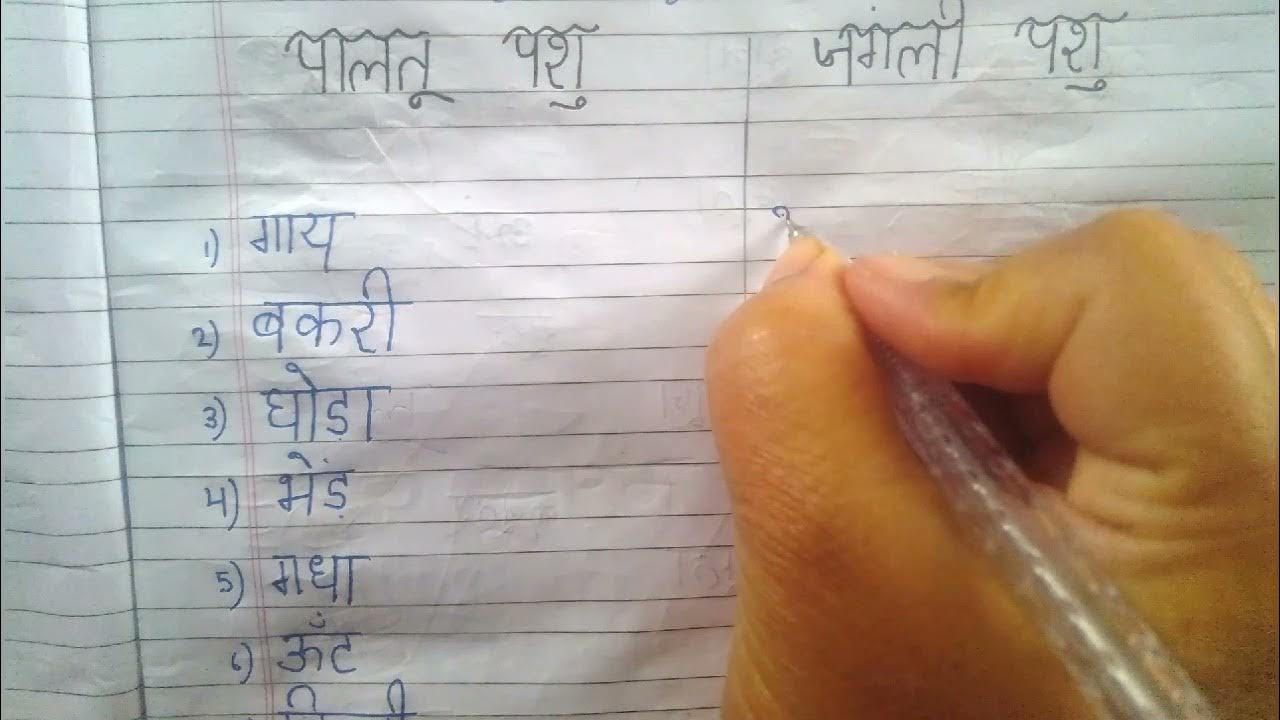 पालतू पशु जंगली पशु
1) गाय
2) बकरी
3) घोड़ा
4) भेंड़
5) गधा
6) ऊँट